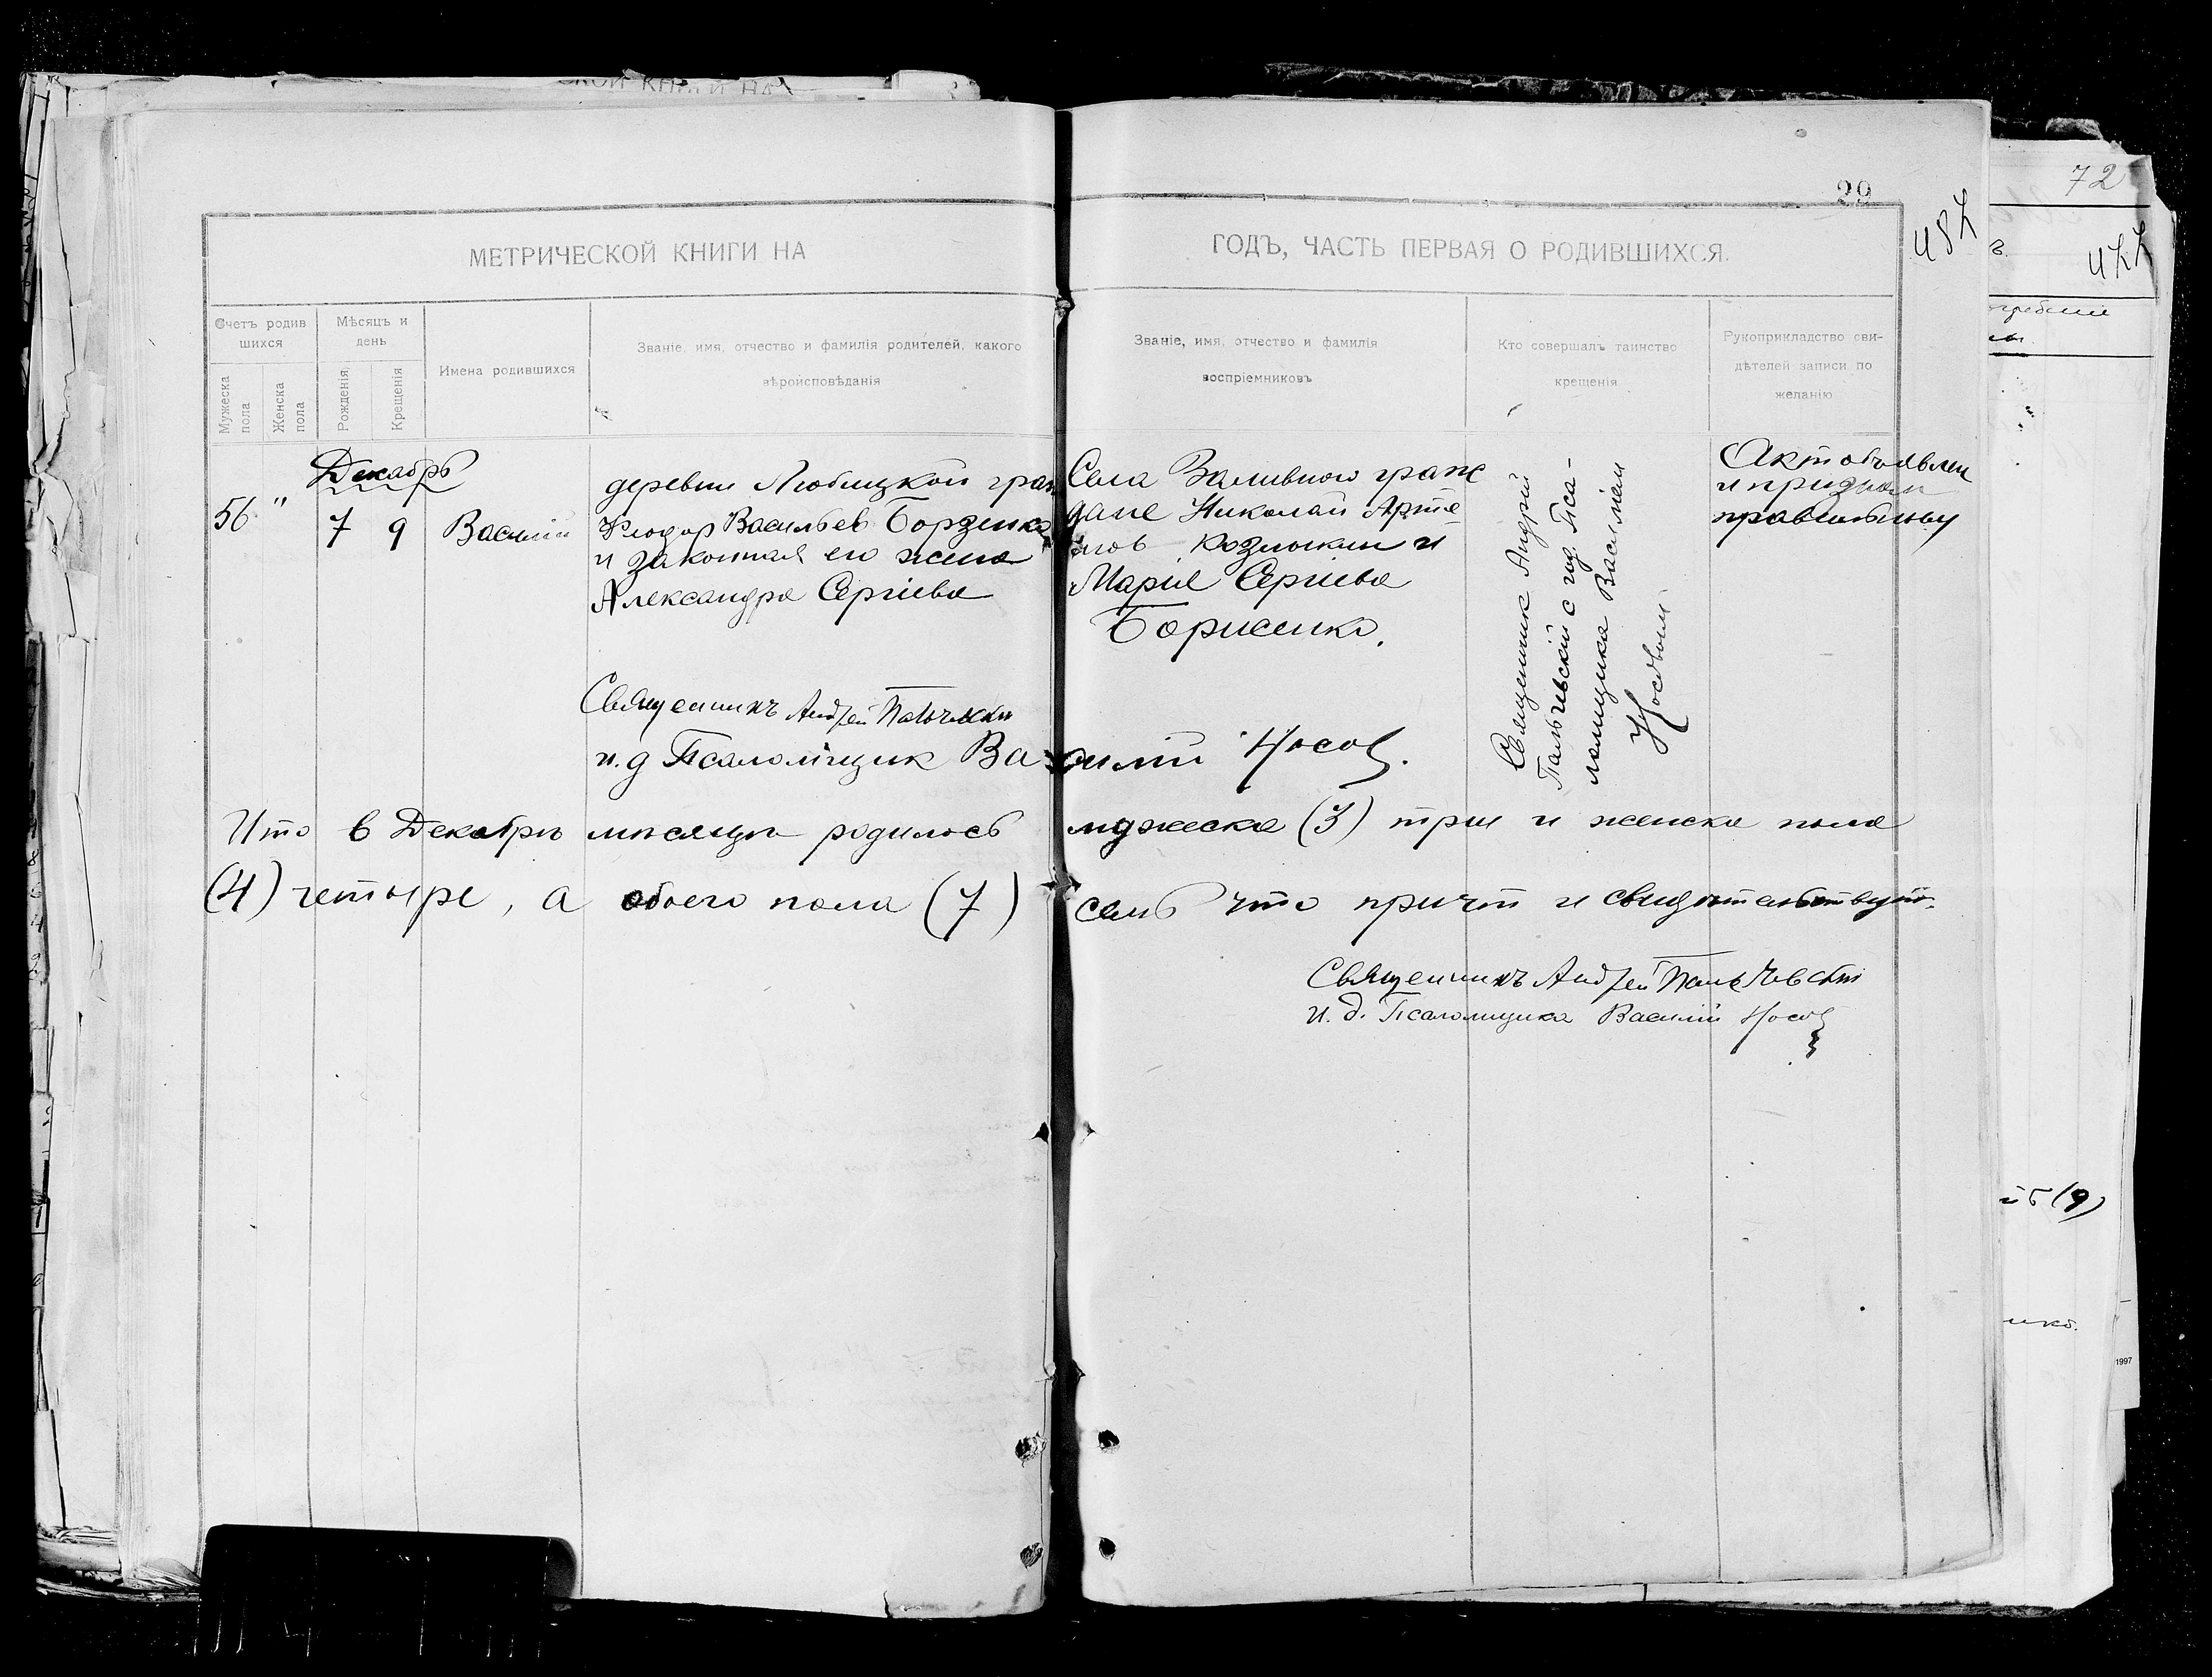 29
72
487
477
МЕТРИЧЕСКОЙ КНИГИ НА
ГОДЪ, ЧАСТЬ ПЕРВАЯ О РОДИВШИХСЯ.
Счетъ родив
шихся
Мѣсяцъ и
день
Мужеска
пола
Женска
пола
Рожденія
Крещенія
Имена родившихся
Званіе, имя, отчество и фамилія родителей, какого
вѣроисповѣданія
Званіе, имя, отчество и фамилія
воспріемниковъ
Кто совершалъ таинство
крещенія
Рукоприкладство сви-
дѣтелей записи по
желанію
Декабрь
56 "
7
9
Василій
деревни Любицкой граж
Ѳеодор Васильев Борзенко
и законная его жена
Александра Сергіева
Села Заливного граж
дане Николай Артё
мов Козлюкин и
Марія Сергіева
Борисенко.
Священник Андрей
Пальчевскій с и.д. Пса-
ломщика Василіем
Носовым.
Акт объявлен
и признан
правильным
Священникъ Андрей Пальчевскій
и.д Псаломщик Василій Носов.
Что в Декабрѣ мѣсяцѣ родилось мужеска (3) три и женска пола
(4) четыре, а обоего пола (7) семь что причт и свидѣтельствует.
Священникъ Андрей Пальчевскій
и. д. Псаломщика Василій Носов
(9)
1997